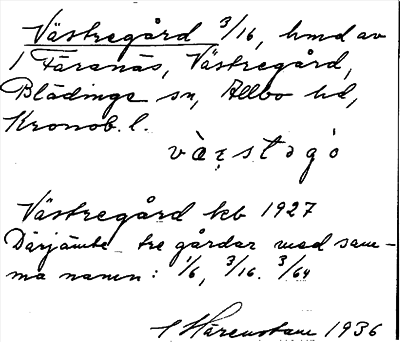 Västregård 3/16, hmd av
1 Färanäs, Västregård,
Blädinge sn, Allbo hd,
Kronob. l.
Västregård kb 1927
Därjämte tre gårdar med sam-
ma namn: 1/6, 3/16. 3/64
Härenstam 1936